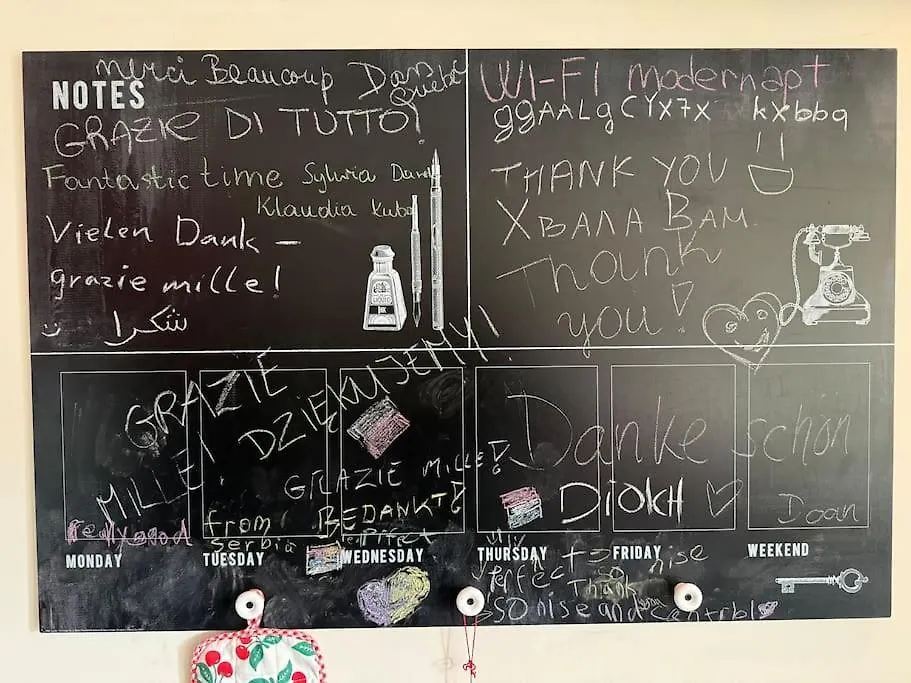 merci Beaucoup Danke
NOTES
GRAZIE DI TUTTO!
Fantastic time Sylwia
Klaudia Kuba
Vielen Dank –
grazie mille!
شكرا
WI-FI modernapt
ggAALgCYX7X kXbbq
THANK YOU
ХВАЛА ВАМ
Thank
you!
LIQUID
INK
GRAZIE
MILLE! DZIĘKUJEMY!
GRAZIE MILLE!
BEDANKT!
Danke schön
DIOLCH
Doan
really good
from
Serbia
perfect
MONDAY
TUESDAY
WEDNESDAY
THURSDAY
FRIDAY
WEEKEND
nise
perfect so
Thank
so nise and